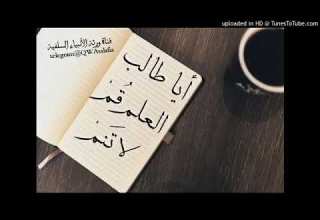 uploaded in HD @ TunesToTube.com
قناة ورثة الأنبياء السلفية
telegram@QWAsalafia
أيا طالب
العلم قُمْ
لا تَنم